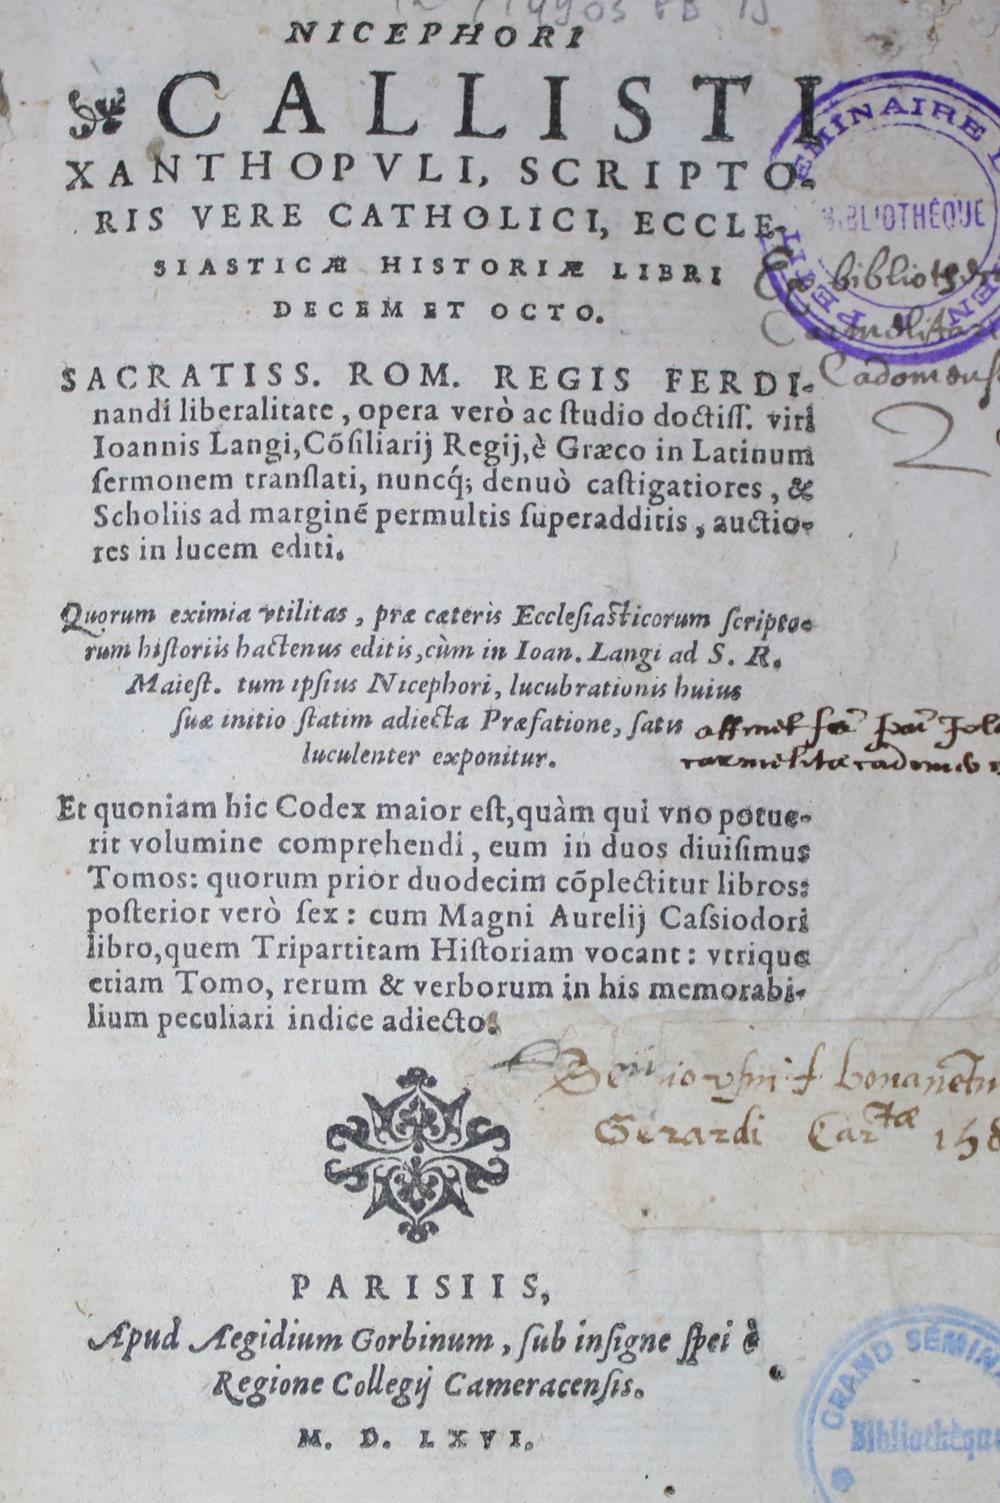 NICEPHORI
CALLISTI
XANTHOPVLI, SCRIPTO-
RIS VERE CATHOLICI, ECCLE-
SIASTICÆ HISTORIÆ LIBRI
DECEM ET OCTO.
SACRATISS. ROM. REGIS FERDI-
nandi liberalitate, opera verò ac ſtudio doctiſſ. viri
Ioannis Langi, Cõſiliarij Regij, è Græco in Latinum
ſermonem tranſlati, nuncq́; denuò caſtigatiores, &
Scholiis ad marginẽ permultis ſuperadditis, auctio-
res in lucem editi.
Quorum eximia vtilitas, præ cæteris Eccleſiaſticorum ſcripto-
rum hiſtoriis hactenus editis, cùm in Ioan. Langi ad S. R.
Maieſt. tum ipſius Nicephori, lucubrationis huius
ſuæ initio ſtatim adiecta Præfatione, ſatis
luculenter exponitur.
Et quoniam hic Codex maior eſt, quàm qui vno potue-
rit volumine comprehendi, eum in duos diuiſimus
Tomos: quorum prior duodecim cõplectitur libros:
poſterior verò ſex: cum Magni Aurelij Caſsiodori
libro, quem Tripartitam Hiſtoriam vocant: vtrique
etiam Tomo, rerum & verborum in his memorabi-
lium peculiari indice adiecto.
Gerardi
PARISIIS,
Apud Aegidium Gorbinum, ſub inſigne ſpei è
Regione Collegij Cameracenſis.
M. D. LXVI.
BIBLIOTHÈQUE
PETIT
GRAND SÉMIN
Bibliothèque